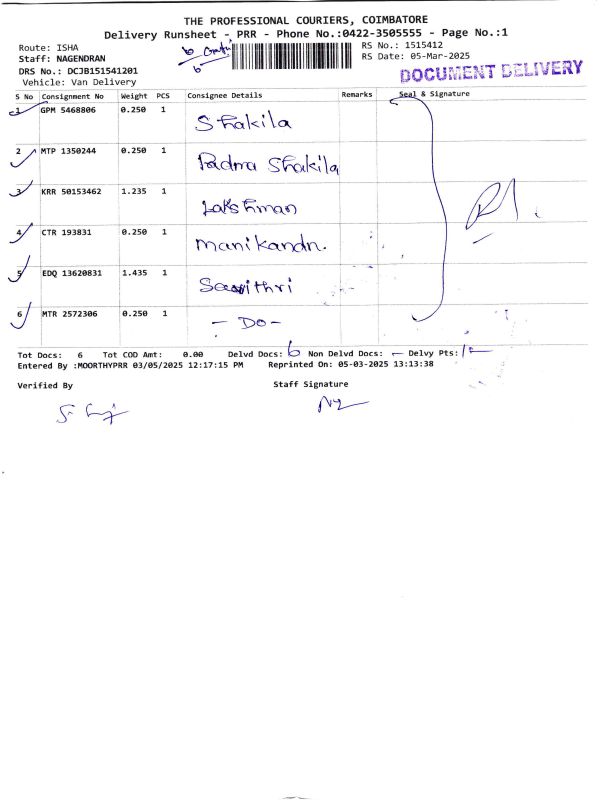 THE PROFESSIONAL COURIERS, COIMBATORE
Delivery Runsheet - PRR - Phone No.:0422-3505555 - Page No.:1
Route: ISHA
RS No.: 1515412
Staff: NAGENDRAN
RS Date: 05-Mar-2025
DRS No.: DCJB151541201
DOCUMENT DELIVERY
Vehicle: Van Delivery
6
S No Consignment No Weight PCS Consignee Details Remarks Seal & Signature
1 GPM 5468806 0.250 1 Shakila
2 MTP 1350244 0.250 1 Padma Shakila
3 KRR 50153462 1.235 1 Lakshman
4 CTR 193831 0.250 1 Manikandn.
5 EDQ 13620831 1.435 1 Savithri
6 MTR 2572306 0.250 1 - DO -
Tot Docs: 6 Tot COD Amt: 0.00 Delvd Docs: 6 Non Delvd Docs: - Delvy Pts: 1
Entered By :MOORTHYPRR 03/05/2025 12:17:15 PM Reprinted On: 05-03-2025 13:13:38
Verified By Staff Signature